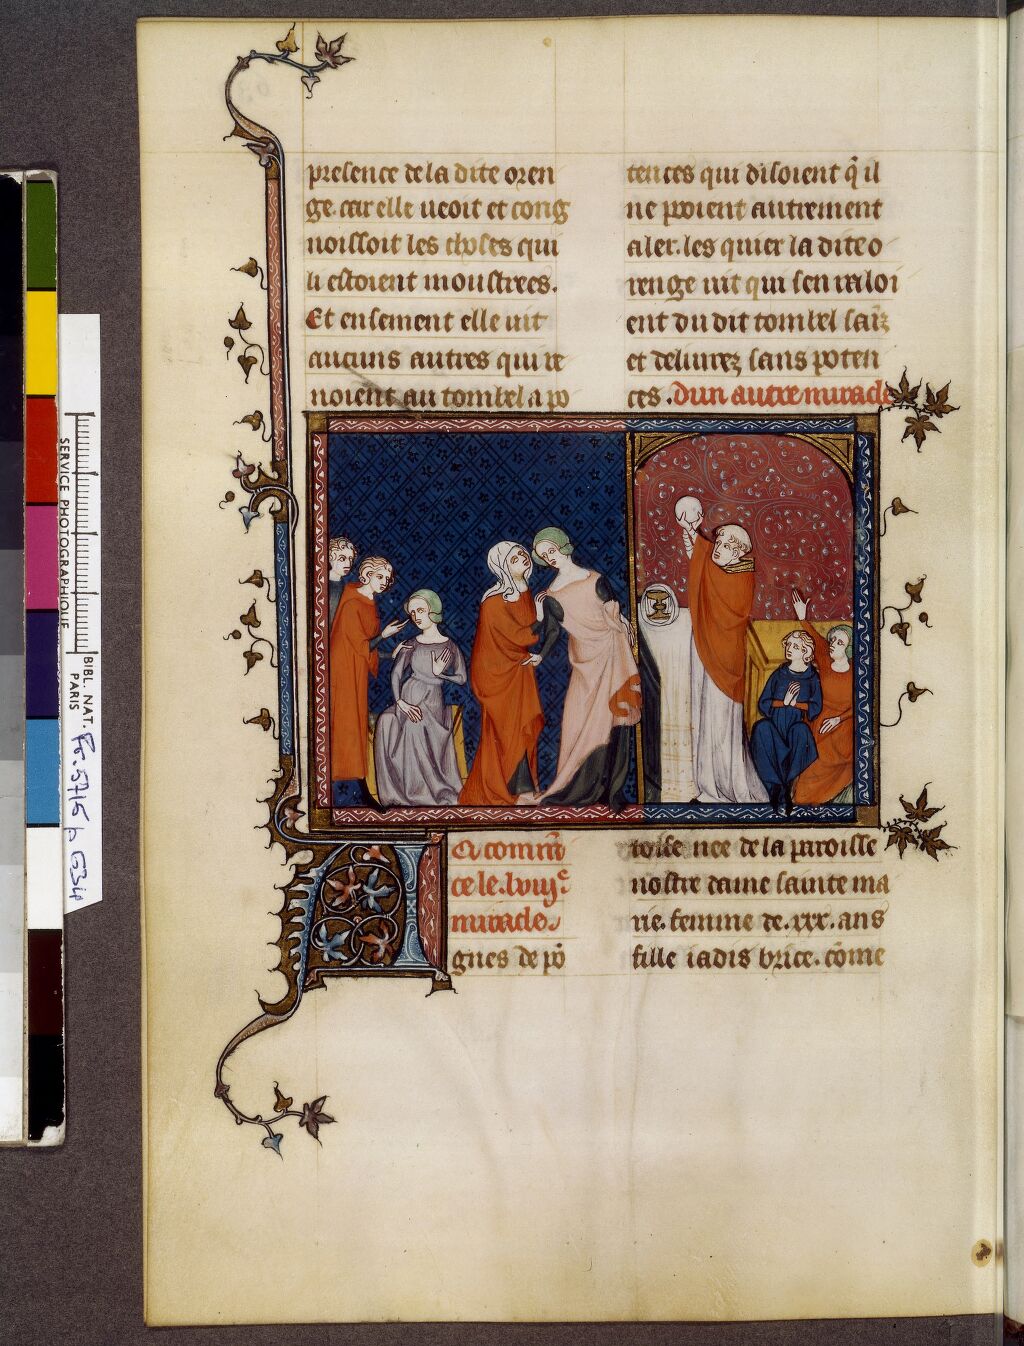 presence de la dite oren
ge. car elle ueoit et cong
noissoit les choses qui
li estoient moustrees.
Et ensement elle uit
aucuns autres qui ue
noient au tombel a po
tences qui disoient q̃ il
ne pooient autrement
aler. les quiex la dite o
renge uit qui sen raloi
ent du dit tombel sains
et deliurez sans poten
ces. Dun autre miracle
Ci commẽ
ce le .lviij.e
miracle.
gnes de põ
toise nee de la paroisse
nostre dame sainte ma
rie. femme de .xxx. ans
fille iadis brice. cõme
SERVICE PHOTOGRAPHIQUE
BIBL. NAT.
PARIS
Fr. 5716 p 634